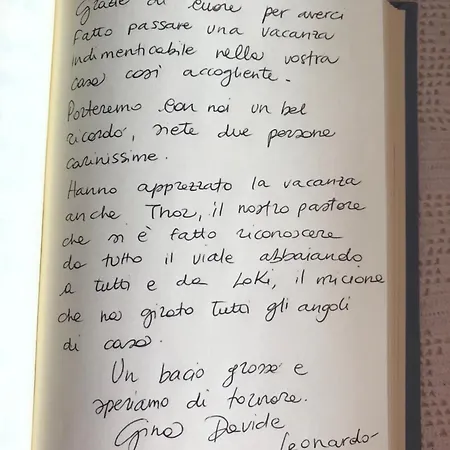 Grazie di cuore per averci
fatto passare una vacanza
indimenticabile nella vostra
casa così accogliente.
Porteremo con noi un bel
ricordo, siete due persone
carinissime.
Hanno apprezzato la vacanza
anche Thor, il nostro pastore
che si è fatto riconoscere
da tutto il viale abbaiando
a tutti e da Loki, il micione
che ha girato tutti gli angoli
di casa.
Un bacio grosso e
speriamo di tornare.
Gina Davide
Leonardo